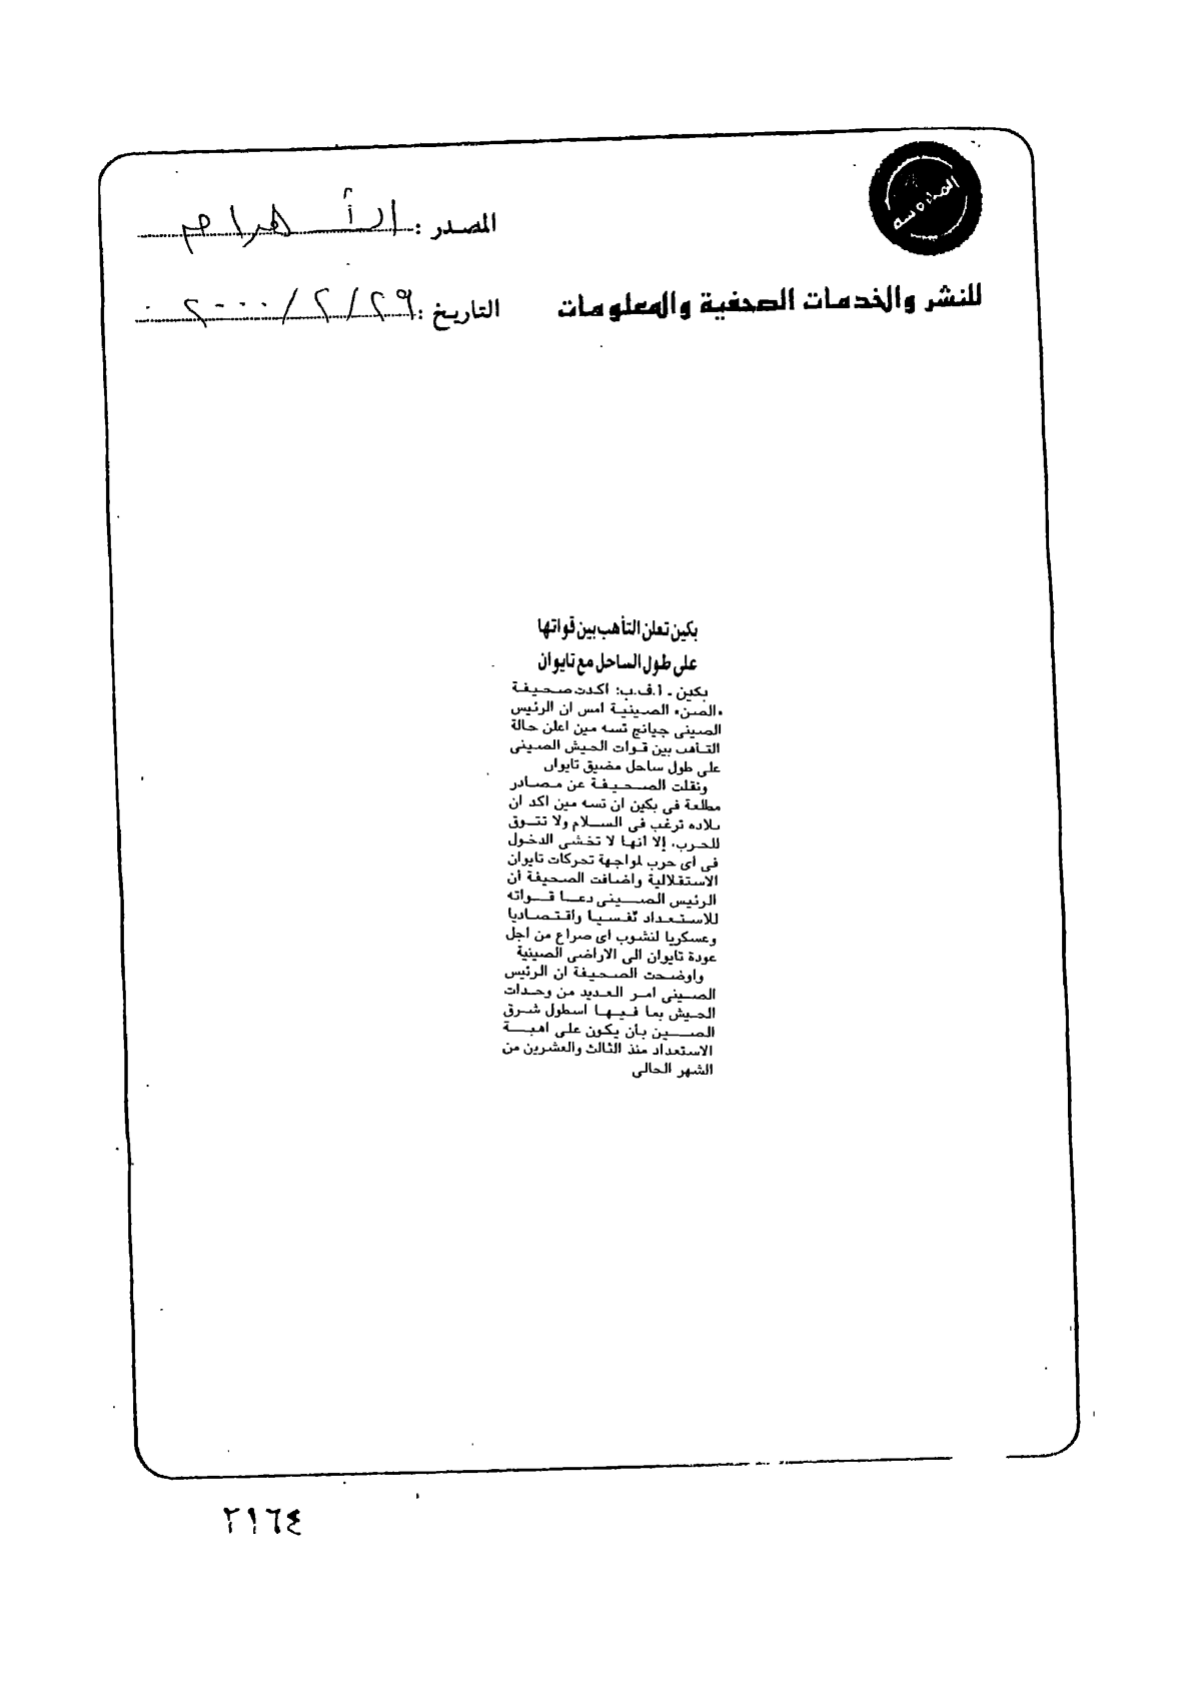 المصدر : الأهرام
للنشر والخدمات الصحفية والمعلومات
التاريخ : ٢٩/٢/٢٠٠٠
بكين تعلن التأهب بين قواتها
على طول الساحل مع تايوان
بكين - أ.ف.ب: أكدت صحيفة
«الصن» الصينية امس ان الرئيس
الصينى جيانج تسه مين اعلن حالة
التأهب بين قوات الجيش الصينى
على طول ساحل مضيق تايوان
ونقلت الصحيفة عن مصادر
مطلعة فى بكين ان تسه مين اكد ان
بلاده ترغب فى السلام ولا تتوق
للحرب، إلا انها لا تخشى الدخول
فى اى حرب لمواجهة تحركات تايوان
الاستقلالية واضافت الصحيفة ان
الرئيس الصينى دعا قواته
للاستعداد نفسيا واقتصاديا
وعسكريا لنشوب اى صراع من اجل
عودة تايوان الى الاراضى الصينية
واوضحت الصحيفة ان الرئيس
الصينى امر العديد من وحدات
الجيش بما فيها اسطول شرق
الصين بأن يكون على اهبة
الاستعداد منذ الثالث والعشرين من
الشهر الحالى
٢١٦٤